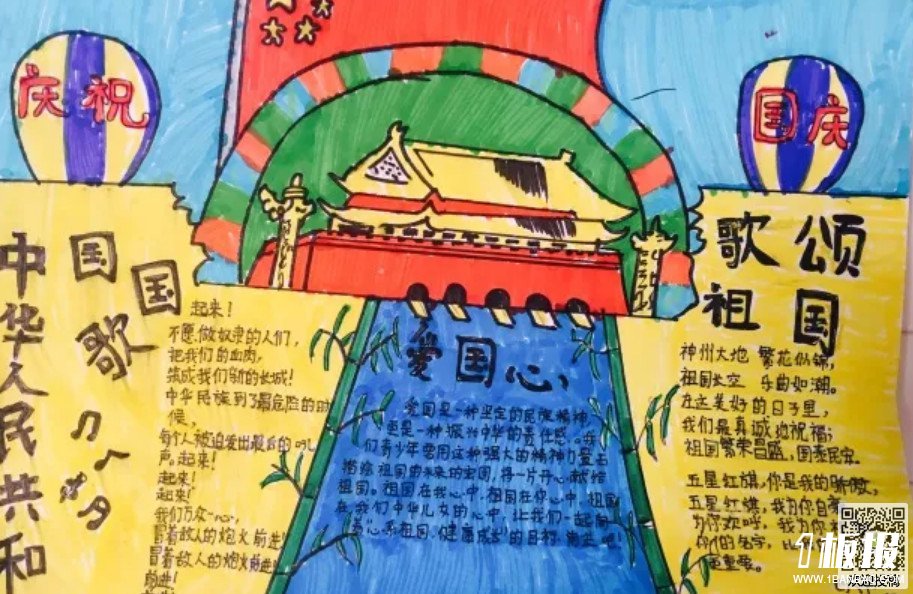 庆祝
国庆
中华人民共和
国
国歌
起来！
不愿做奴隶的人们，
把我们的血肉，
筑成我们新的长城！
中华民族到了最危险的时
候，
每个人被迫发出最后的吼
声。起来！
起来！
起来！
我们万众一心，
冒着敌人的炮火前进！
冒着敌人的炮火前进！
前进！
爱国心，
爱国是一种坚定的民族精神
更是一种振兴中华的责任感。我
们青少年要用这种强大的精神力量去
描绘祖国的未来的宏图，将一片开心献给
祖国。祖国在我心中，祖国在你心中，祖国
在我们中华儿女的心中，让我们一起向
着心系祖国，健康成长的目标
吧！
歌颂
祖国
神州大地 繁花似锦，
祖国长空 乐曲如潮。
在这美好的日子里，
我们最真诚地祝福；
祖国繁荣昌盛，国泰民安。
五星红旗，你是我的骄傲，
五星红旗，我为你自
为你欢呼，我为你
你的名字，比
重要。
1板报
WWW.1BANBAO.COM